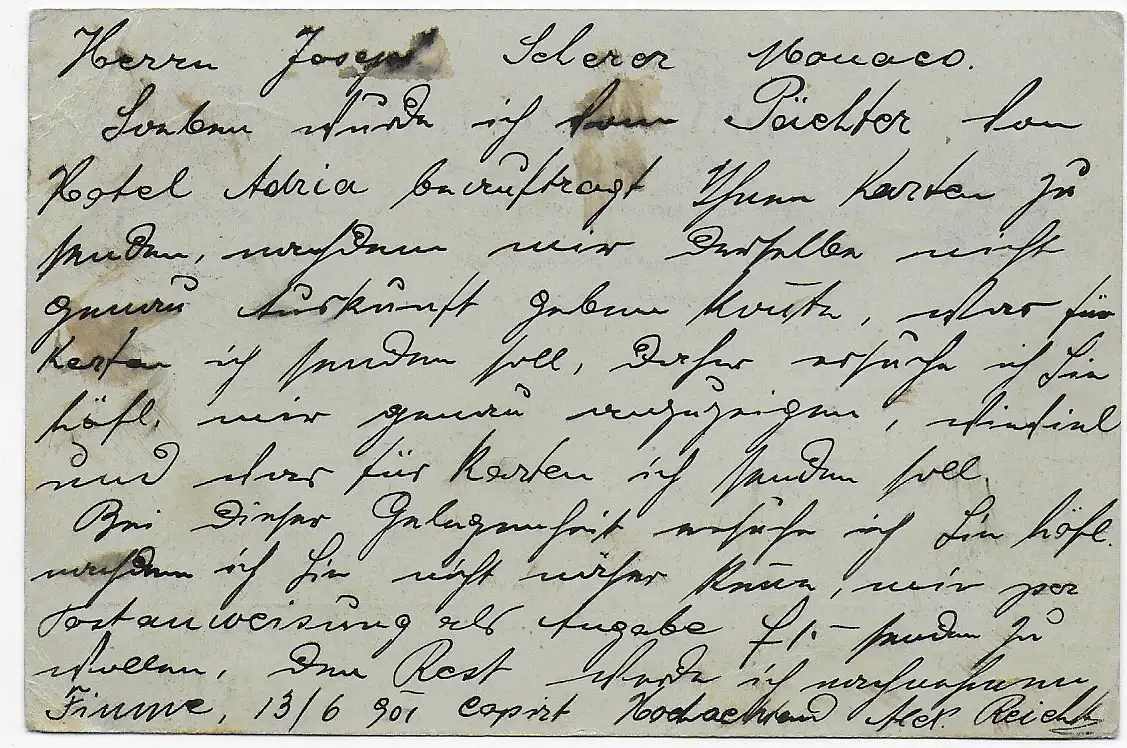 Herrn Joseph Scherer Monaco.
Soeben wurde ich vom Pächter vom
Hotel Adria beauftragt Ihnen Karten zu
senden, nachdem mir derselbe nicht
genau Auskunft geben konte, was für
Karten ich senden soll, daher ersuche ich Sie
höfl. mir genau anzuzeigen, wieviel
und was für Karten ich senden soll.
Bei dieser Gelegenheit ersuche ich Sie höfl.
nachdem ich Sie nicht näher kenne, mir per
Postanweisung als Angabe f 1.– senden zu
wollen, den Rest werde ich nachnehmen
Fiume, 13/6 901 copirt Hochachtend Alex. Reich